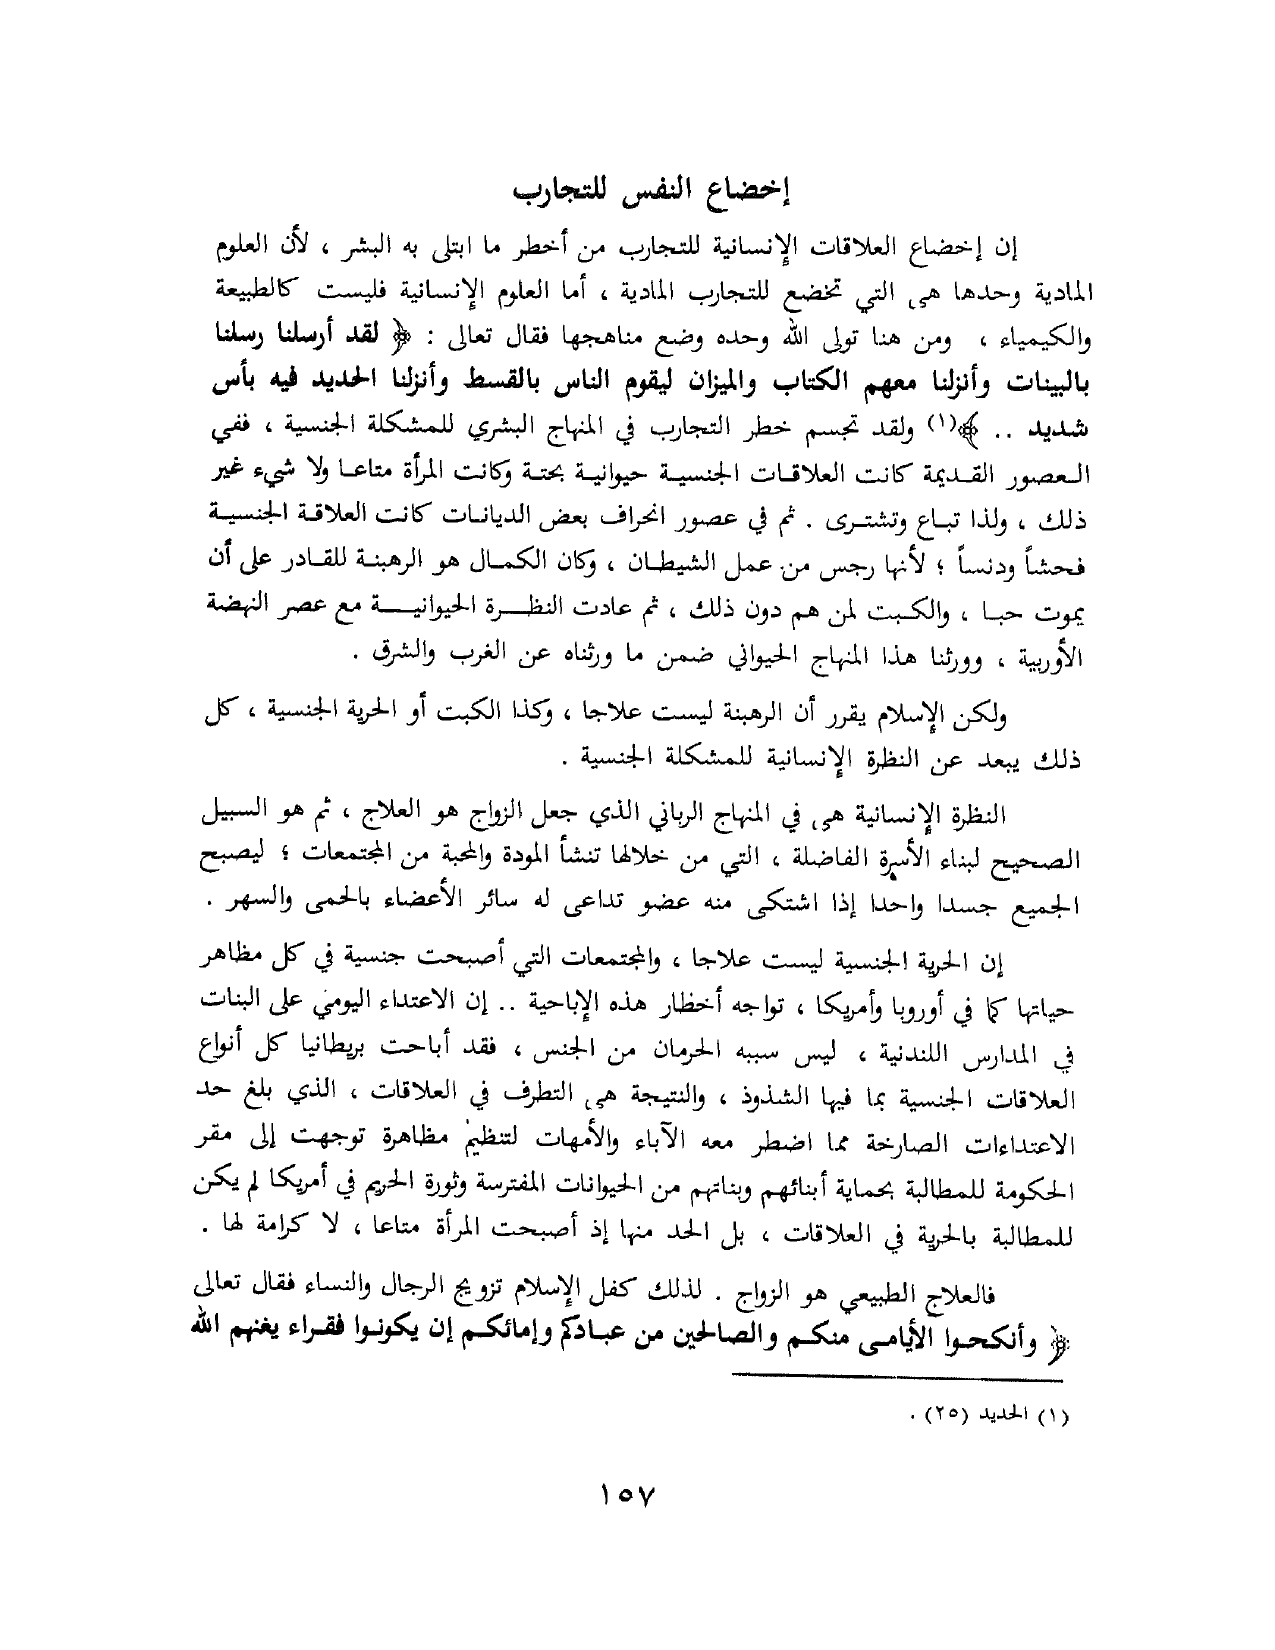 إخضاع النفس للتجارب
إن إخضاع العلاقات الإنسانية للتجارب من أخطر ما ابتلى به البشر ، لأن العلوم
المادية وحدها هى التي تخضع للتجارب المادية ، أما العلوم الإنسانية فليست كالطبيعة
والكيمياء ، ومن هنا تولى الله وحده وضع مناهجها فقال تعالى : ﴿ لقد أرسلنا رسلنا
بالبينات وأنزلنا معهم الكتاب والميزان ليقوم الناس بالقسط وأنزلنا الحديد فيه بأس
شديد .. ﴾(١) ولقد تجسم خطر التجارب في المنهاج البشري للمشكلة الجنسية ، ففي
العصور القديمة كانت العلاقات الجنسية حيوانية بحتة وكانت المرأة متاعا ولا شيء غير
ذلك ، ولذا تباع وتشترى . ثم في عصور انحراف بعض الديانات كانت العلاقة الجنسية
فحشاً ودنساً ؛ لأنها رجس من عمل الشيطان ، وكان الكمال هو الرهبنة للقادر على أن
يموت حبا ، والكبت لمن هم دون ذلك ، ثم عادت النظرة الحيوانية مع عصر النهضة
الأوربية ، وورثنا هذا المنهاج الحيواني ضمن ما ورثناه عن الغرب والشرق .
ولكن الإسلام يقرر أن الرهبنة ليست علاجا ، وكذا الكبت أو الحرية الجنسية ، كل
ذلك يبعد عن النظرة الإنسانية للمشكلة الجنسية .
النظرة الإنسانية هى في المنهاج الرباني الذي جعل الزواج هو العلاج ، ثم هو السبيل
الصحيح لبناء الأسرة الفاضلة ، التي من خلالها تنشأ المودة والمحبة من المجتمعات ؛ ليصبح
الجميع جسدا واحدا إذا اشتكى منه عضو تداعى له سائر الأعضاء بالحمى والسهر .
إن الحرية الجنسية ليست علاجا ، والمجتمعات التي أصبحت جنسية في كل مظاهر
حياتها كما في أوروبا وأمريكا ، تواجه أخطار هذه الإباحية .. إن الاعتداء اليومي على البنات
في المدارس اللندنية ، ليس سببه الحرمان من الجنس ، فقد أباحت بريطانيا كل أنواع
العلاقات الجنسية بما فيها الشذوذ ، والنتيجة هى التطرف في العلاقات ، الذي بلغ حد
الاعتداءات الصارخة مما اضطر معه الآباء والأمهات لتنظيم مظاهرة توجهت إلى مقر
الحكومة للمطالبة بحماية أبنائهم وبناتهم من الحيوانات المفترسة وثورة الحريم في أمريكا لم يكن
للمطالبة بالحرية في العلاقات ، بل الحد منها إذ أصبحت المرأة متاعا ، لا كرامة لها .
فالعلاج الطبيعي هو الزواج . لذلك كفل الإسلام تزويج الرجال والنساء فقال تعالى
﴿ وأنكحوا الأيامى منكم والصالحين من عبادكم وإمائكم إن يكونوا فقراء يغنهم الله
(١) الحديد (٢٥) .
١٥٧